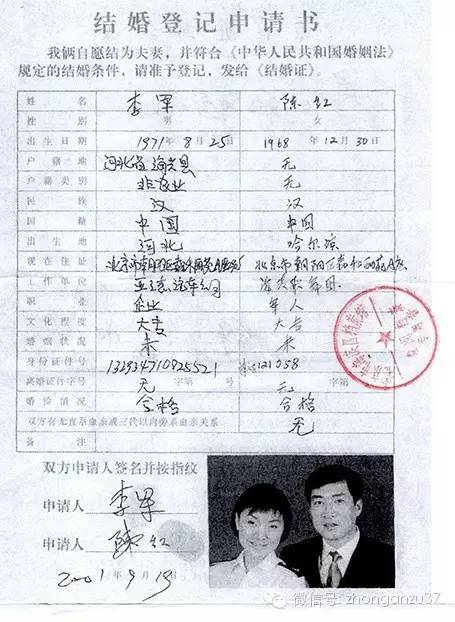 结婚登记申请书
我俩自愿结为夫妻，并符合《中华人民共和国婚姻法》
规定的结婚条件，请准予登记，发给《结婚证》。
姓名 李军 陈红
性别 男 女
出生日期 1971年8月25日 1968年12月30日
户籍地 河北省 县 无
户籍类别 非农业 无
民族 汉 汉
国籍 中国 中国
出生地 河北 哈尔滨
现在住址 北京市朝阳区 北京市朝阳区
工作单位 汽车公司 歌舞团
职业 企业 军人
文化程度 大专 大专
婚姻状况 未 未
身份证件号 132934710825521 121058
离婚证件字号 无 字第 号 无 字第 号
婚检情况 合格 合格
双方有无直系血亲或三代以内旁系血亲关系 无
备注
双方申请人签名并按指纹
申请人 李军
申请人 陳红
2001年9月19日
微信号: zhonganzu37